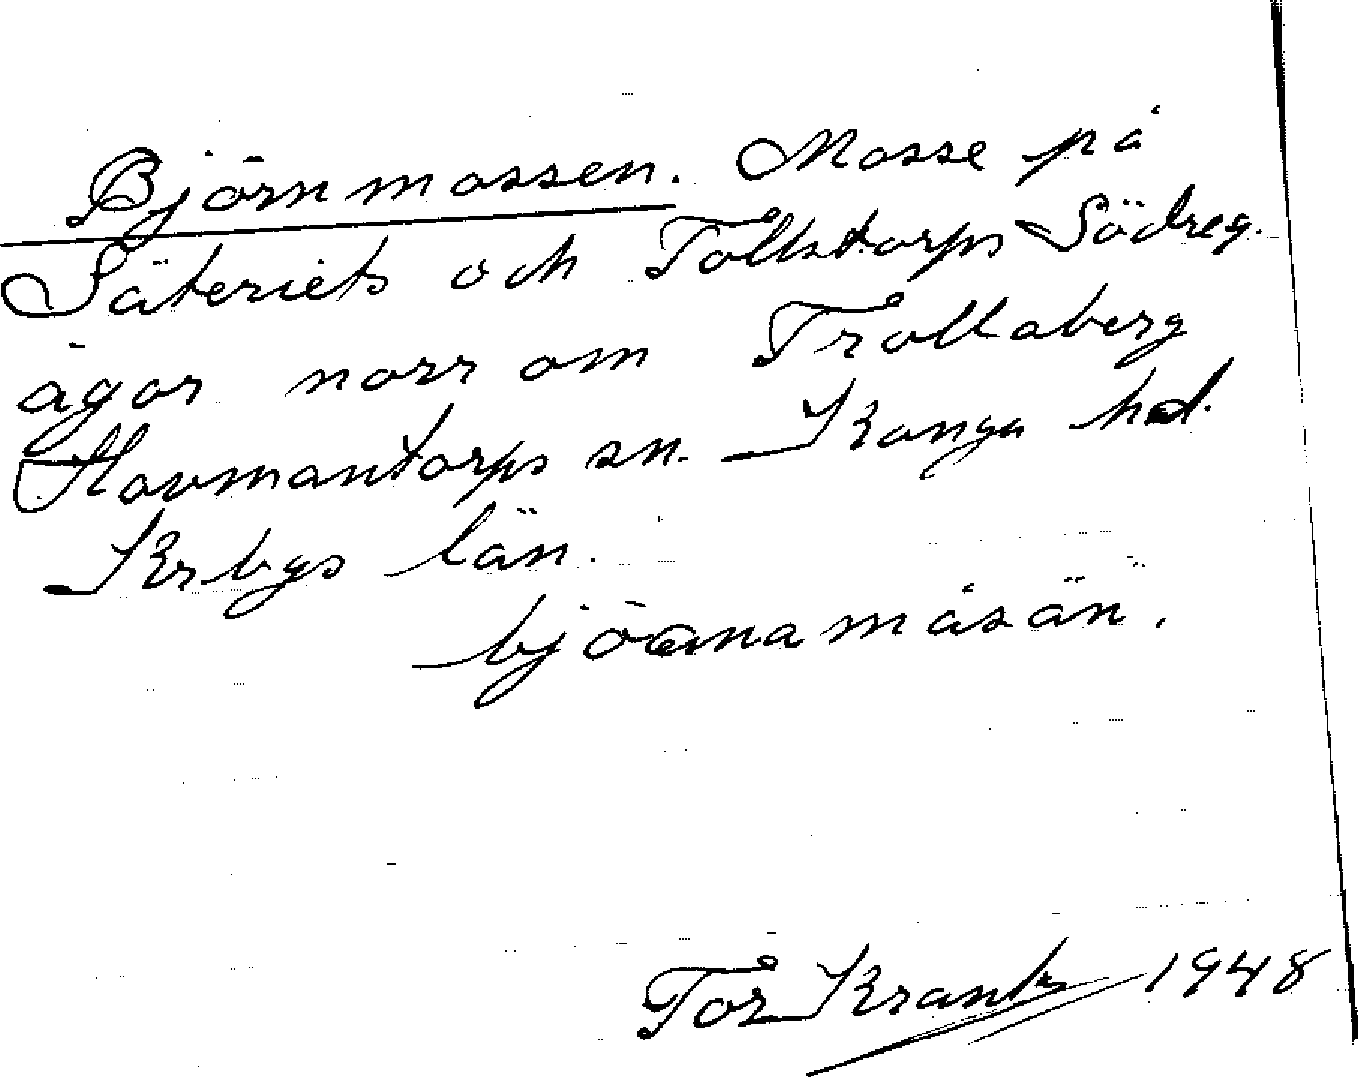 Björnmossen. Mosse på
Säteriets och Tollstorps Södreg.
ägor norr om Trollaberg
Hovmantorps sn. Konga hd.
Krbgs län.
björnamåsän.
Tor Krantz 1948